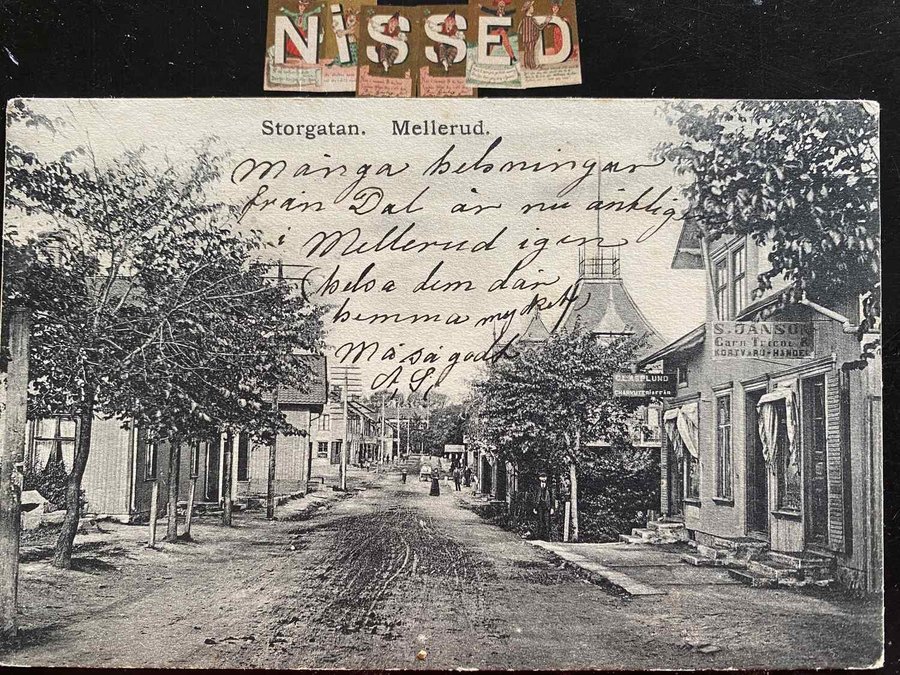 NISSED
Storgatan. Mellerud.
Många helsningar
från Dal är nu äntligen
i Mellerud igen
helsa dem där
hemma mycket
Må så godt
A. S.
S. JANSON
Garn Tricot &
KORTVARU-HANDEL
C.L. ASPLUND
CHARKUTERIaffär